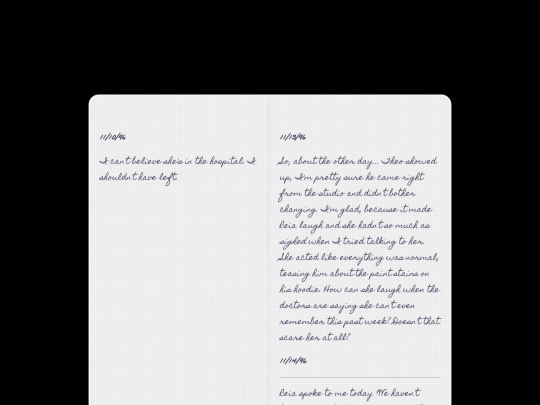 11/10/96
I can't believe she's in the hospital. I
shouldn't have left.
11/13/96
So, about the other day... Theo showed
up, I'm pretty sure he came right
from the studio and didn't bother
changing. I'm glad, because it made
Reia laugh and she hadn't so much as
sighed when I tried talking to her.
She acted like everything was normal,
teasing him about the paint stains on
his hoodie. How can she laugh when the
doctors are saying she can't even
remember this past week? Doesn't that
scare her at all?
11/14/96
Reia spoke to me today. We haven't